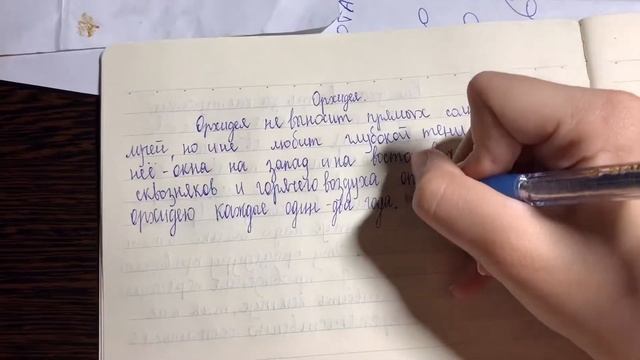 Орхидея.
Орхидея не выносит прямых
лучей, но и не любит глубокой тени
неё - окна на запад и на
сквозняков и горячего воздуха
орхидею каждые один-два года.